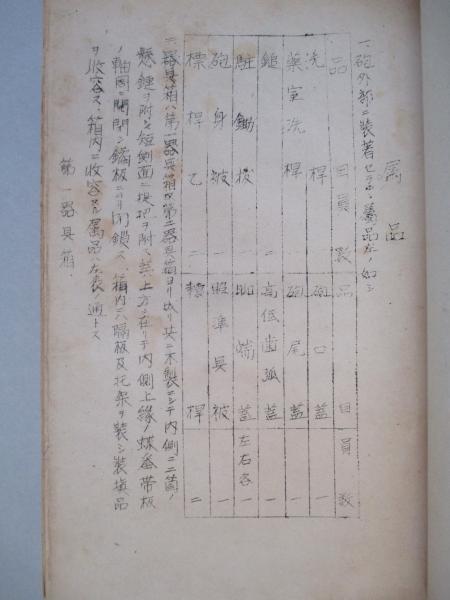 属品
一、砲外部ニ装著セラルヽ属品左ノ如シ
品目 員数 品目 員数
洗桿 一 砲口蓋 一
薬室洗桿 一 砲尾蓋 一
鎚 二 高低歯弧蓋 一
駐鋤 一 蓋 左右各一
砲身被 一 照準具被 一
標桿乙 二 轅桿 二
二、器具箱ハ第一器具箱及第二器具箱ヨリ成リ共ニ木製ニシテ内側ニ二箇ノ
懸鏈ヲ附シ短側面ニ提把ヲ附ス蓋ハ上方ニ在リテ内側上縁ノ蝶番帯板
ノ軸回ニ開閉シ鐍板ニヨリ閉鎖ス、箱内ニハ隔板及托架ヲ装シ装填品
ヲ收容ス、箱内ニ收容スル属品ハ左表ノ通トス
第一器具箱